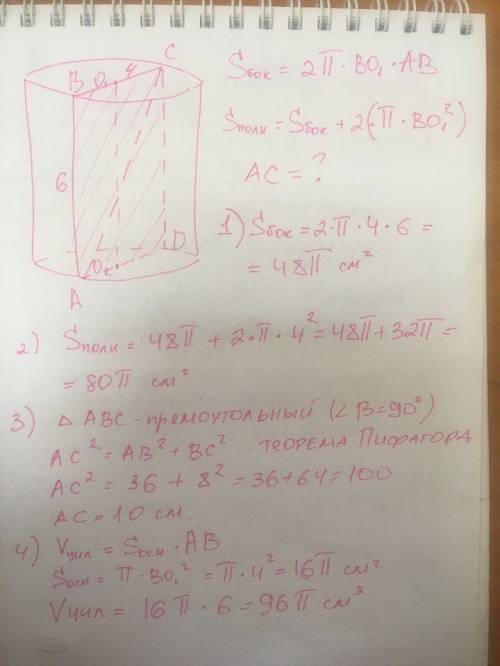 C
B O₁ 4
6
O₂ D
A
Sбок = 2π · BO₁ · AB
Sполн = Sбок + 2(π · BO₁²)
AC = ?
1) Sбок = 2·π·4·6 =
= 48π см²
2) Sполн = 48π + 2·π·4² = 48π + 32π =
= 80π см²
3) △ ABC - прямоугольный (∠B = 90°)
AC² = AB² + BC² теорема Пифагора
AC² = 36 + 8² = 36 + 64 = 100
AC = 10 см.
4) Vцил = Sосн · AB
Sосн = π · BO₁² = π · 4² = 16π см²
Vцил = 16π · 6 = 96π см³